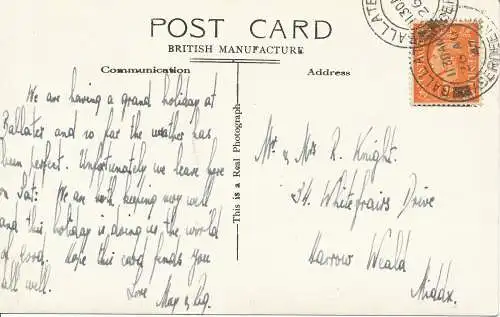 POST CARD
BRITISH MANUFACTURE
Communication
Address
We are having a grand holiday at
Ballater and so far the weather has
been perfect. Unfortunately we leave here
on Sat: We are both keeping very well
and this holiday is doing us the world
of good. Hope this card finds you
all well.
Love
May & Reg.
This is a Real Photograph
Mr & Mrs R. Knight.
34 Whitefriars Drive
Harrow Weald
Middx.
BALLATER
11 30 A
26
BALLATER
11 30 A